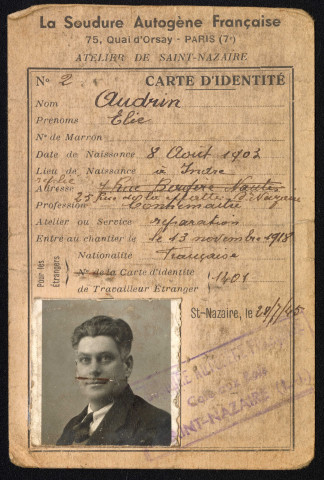 La Soudure Autogène Française
75, Quai d'Orsay - PARIS (7e)
ATELIER DE SAINT-NAZAIRE
N° 2 CARTE D'IDENTITÉ
Nom Audrin
Prénoms Elie
N° de Marron
Date de Naissance 8 Août 1903
Lieu de Naissance à Indre
Adresse 7 Rue Nantes
25 Rue de la St Nazaire
Profession Contremaître
Atelier ou Service réparation
Entré au chantier le le 13 novembre 1918
Pour les Etrangers
Nationalité française
N° de la Carte d'identité 1401
de Travailleur Etranger
St-Nazaire, le 20/7/45
SAINT-NAZAIRE